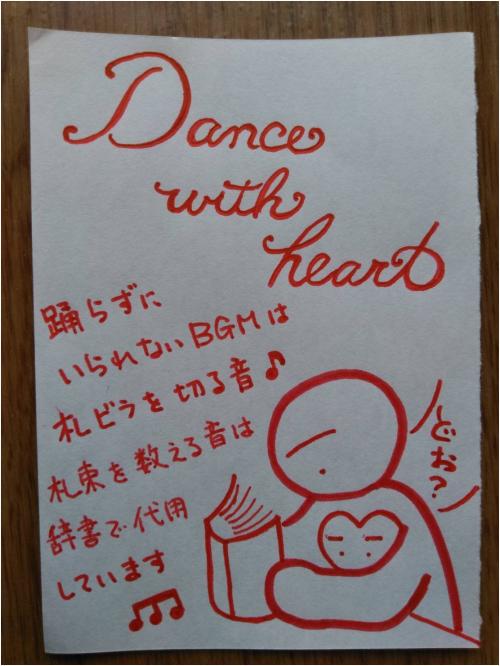 Dance
with
heart
踊らずに
いられないBGMは
札ビラを切る音♪
札束を数える音は
辞書で代用
しています
どお?